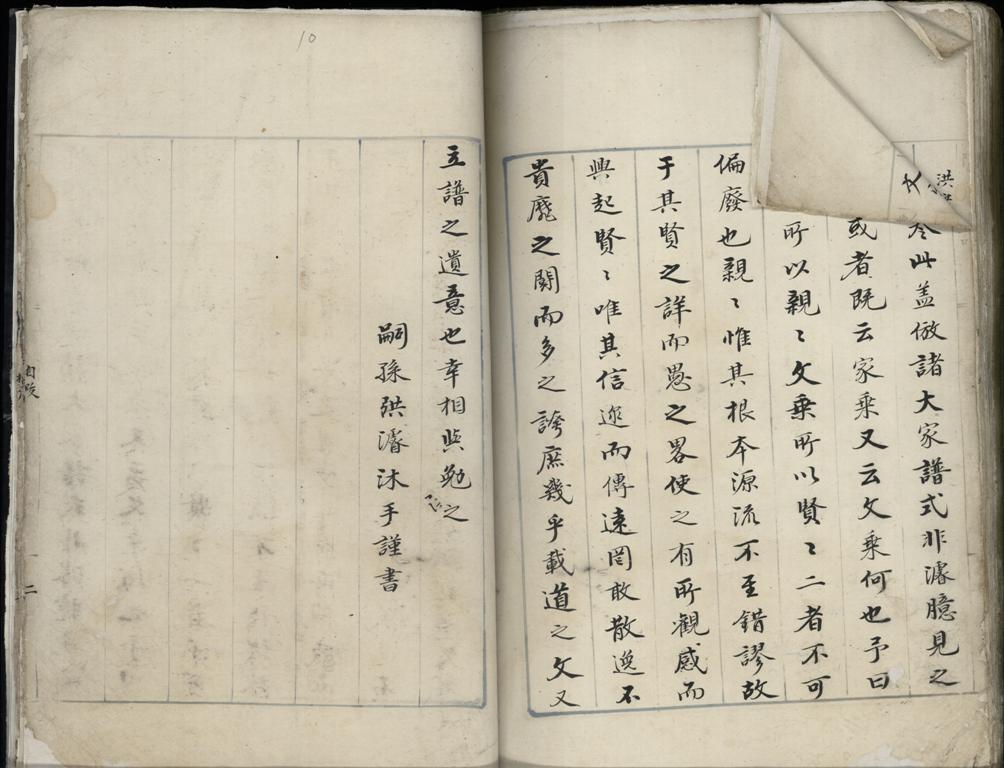 洪
文
 此盖倣諸大家譜式非濬臆見之
或者既云家乘又云文乘何也予曰
所以親〻文乘所以賢〻二者不可
偏廢也親〻惟其根本源流不至錯謬故
于其賢之詳而愚之畧使之有所觀感而
興起賢〻唯其信迩而傳遠罔敢散逸不
貴龐之闘而多之誇庶幾乎載道之文又
立譜之遺意也幸相與勉之
嗣孫洪濬沐手謹書
10
二